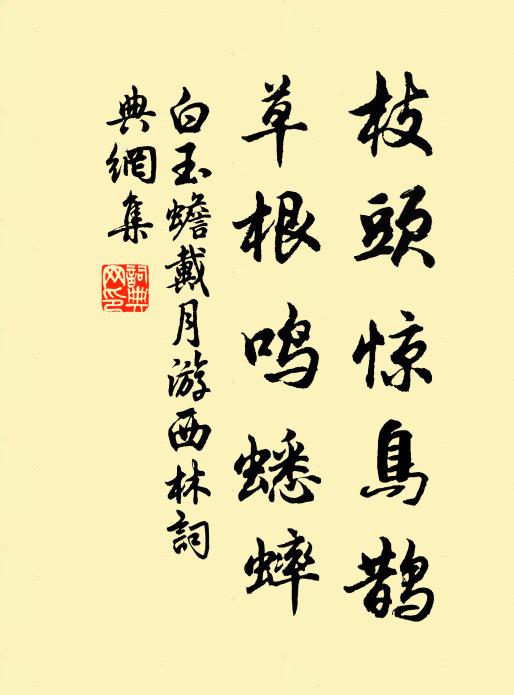 枝頭惊鳥鵲
草根鸣蟋蟀
白玉蟾戴月游西林詞
典網集
詞典网印